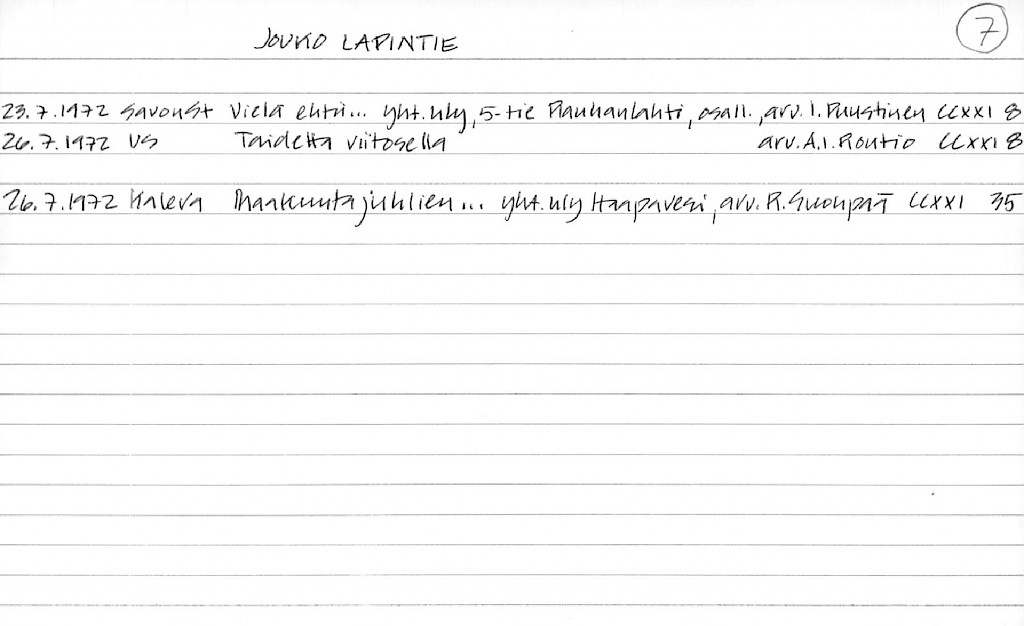 JOUKO LAPINTIE
7
23.7.1972 SavonSt Vielä ehtii... yht.nly, 5-tie Rauhanlahti, osall., arv. I. Puustinen CCXXI 8
26.7.1972 US Taidetta viitosella arv. A.I. Routio CCXXI 8
26.7.1972 Kaleva Maakuntajuhlien... yht.nly Haapavesi, arv. R. Suonpää CCXXI 35